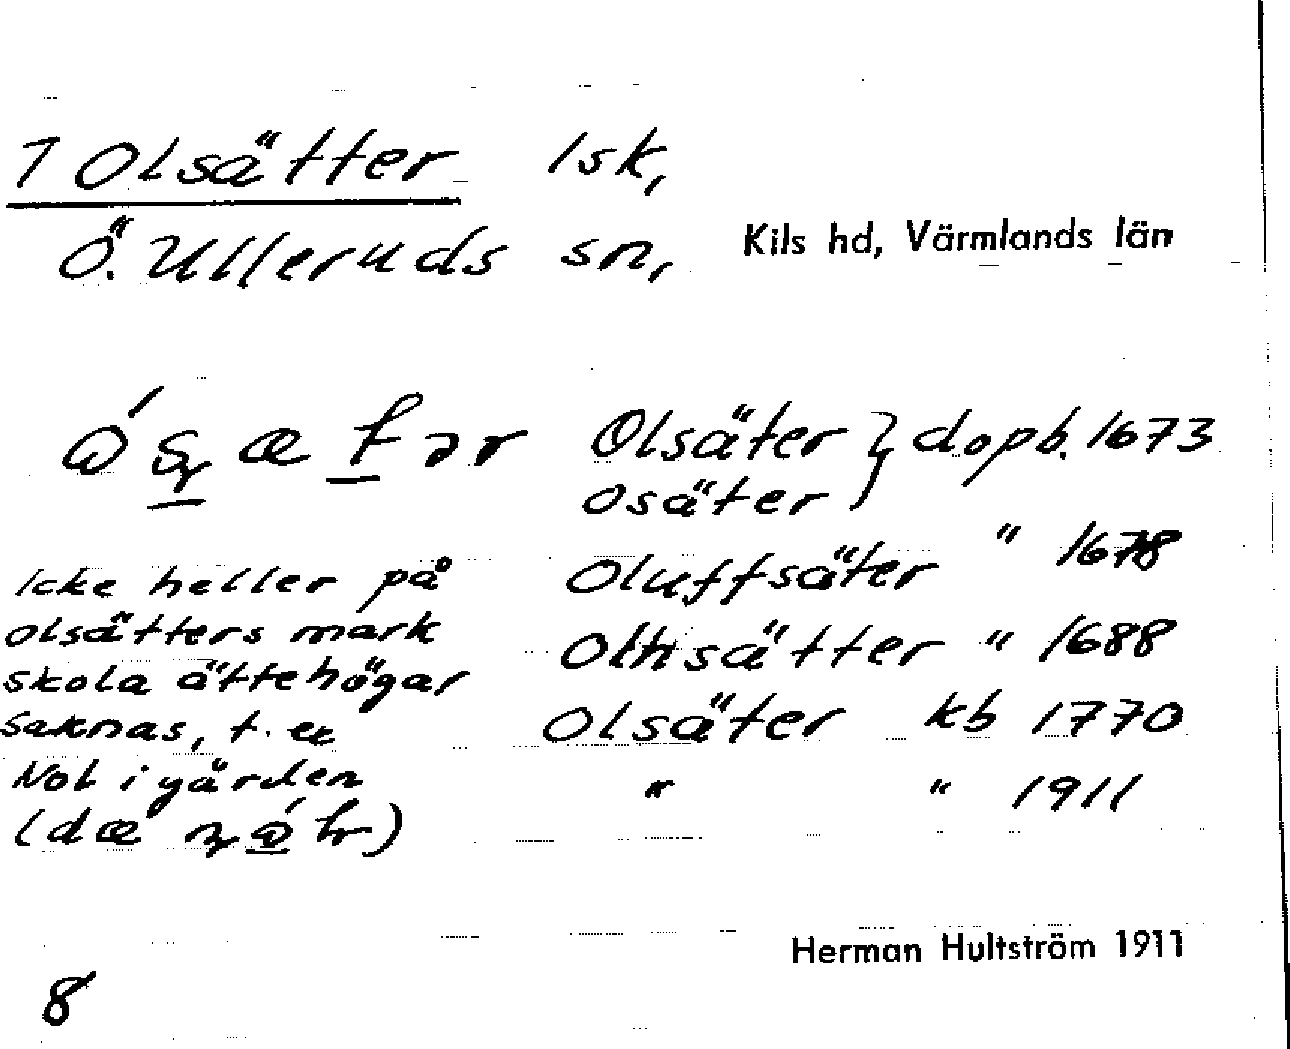 1 Olsätter lsk,
Ö. Ulleruds sn, Kils hd, Värmlands län
Olsäter } dopb. 1673
Osäter }
Oluffsäter " 1678
sätter " 1688
Olsäter kb 1770
" " 1911
Icke heller på
Olsätters mark
skola ättehögar
saknas, t. ex
Nol i gården
Herman Hultström 1911
8